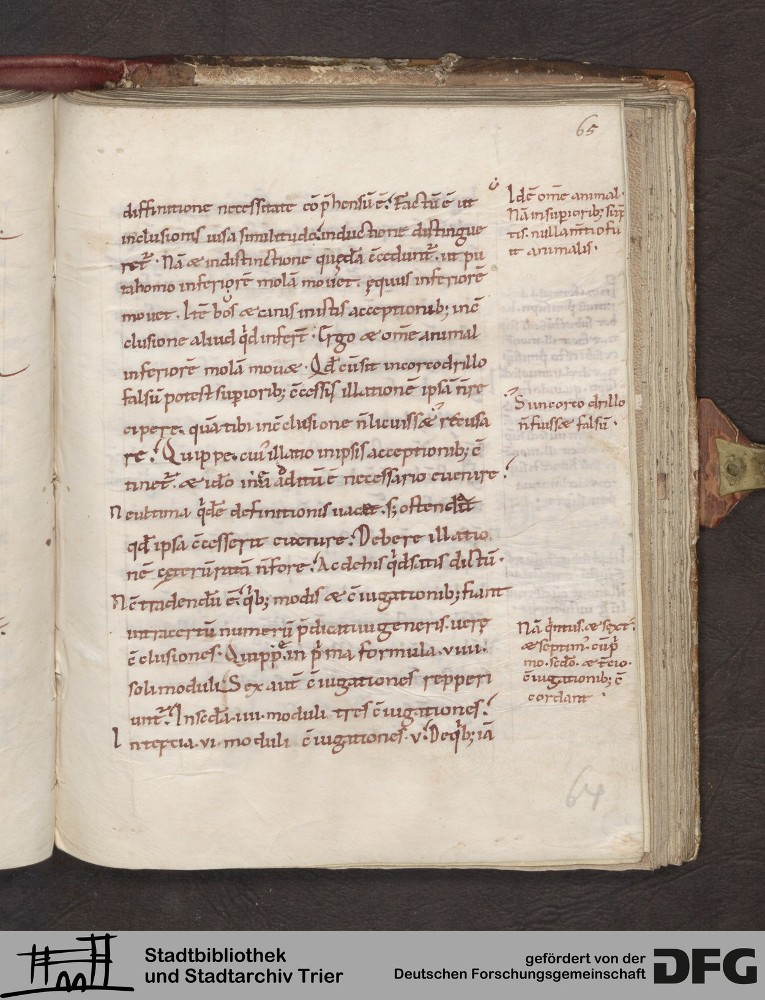 65
diffinitione necessitate cōp̄hensū ē. Factū ē ut
inclusionis uisa similitudo. inductione distingue
ret᷑. Nā & indistinctione quędā c̄cedunt᷑. ut pu
ta homo inferiorē molā mouet. equus inferiorē
mouet. Itē bos & ceruus in istis acceptionib; inc̄
clusione aliud q̇d infert᷑. Ergo & om̄e animal
inferiorē molā mou&. Qđ cū sit in corcodrillo
falsū potest supꝛioribꝫ c̄cessis illationē ipsā n̄ re
cipere. quā tibi in c̄clusione n̄ licuiss& recusa
re. Quippe. cui᷒ illatio in ipsis acceptionib; c̄
tinet᷑. & ideo aditū ē necessario euenire.
Ne ultima q̇dē definitionis uacet. s; ostendat
qđ ipsa c̄cesserit euenire. Debere illatio
nē ceterū ratā n̄ fore. Ac de his q̇d satis dictū.
Nc̄ tradendū ē. q̇b; modis & c̄iugationib; fiant
intra certū numerū p̄dicatiui generis. uerę
c̄clusiones. Quippe in p̄ma formula. uiiii.
soli moduli. Sex aut̄ c̄iugationes repperi
unt᷑. In sc̄da. iiii. moduli tres c̄iugationes.
In tertia. vi. moduli c̄iugationes. v. De q̇b; iā
Idē om̄e animal.
Nā in supꝛiorib; sūp
tis. nulla m̄tio fu
it animalis.
S in corcodrillo
n̄ fuiss& falsū.
Nā q̇ntus. & sext᷒.
& septim᷒. cū p̄
mo. sc̄do. & t̄cio.
c̄iugationib; c̄
cordant
64
Stadtbibliothek
und Stadtarchiv Trier
gefördert von der
Deutschen Forschungsgemeinschaft
DFG